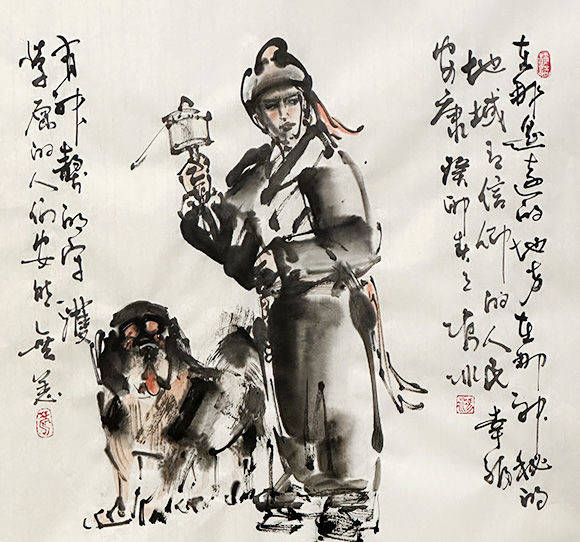 在那遥远的地方在那神秘的
地域有信仰的人民幸福
安康 癸卯春之
有神獒的守護
草原的人们安然无恙